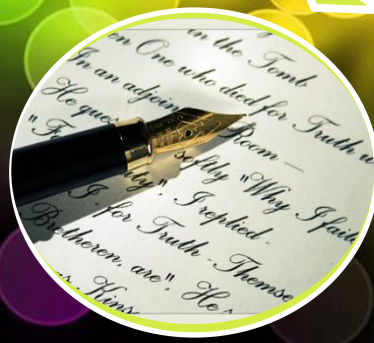 in the Tomb
en One who died for Truth w
In an adjoin Room —
He que ftly "Why I faile
"Fo ty", I replied-
I for Truth - Themse
Bretheren, are", He s
Kins